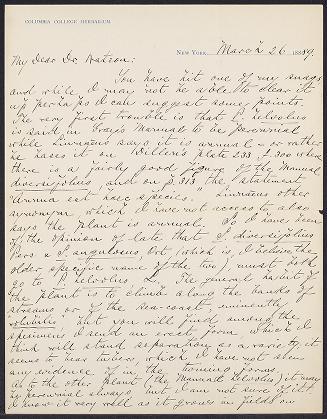 COLUMBIA COLLEGE HERBARIUM
NEW YORK, March 26 1889.
My Dear Dr. Watson:
You have hit one of my snags
and while I may not be able to clear it
up perhaps I can suggest some points.
The very first trouble is that P. helvolus
is said in Gray's Manual to be perennial
while Linnaeus says it is annual – or rather
he bases it on Dillen's plate 233. f. 300 where
there is a fairly good figure of the Manual
diversifolius and on p. 313 the statement
"Annua est haec species." Linnaeus other
synonym which I have not access to also
says the plant is annual. So I have been
of the opinion of late that P. diversifolius
Pers. & P. angulosus Ort. (which is, I believe the
older specific name of the two) must both
go to P. helvolus L. The general habit of
the plant is to climb along the banks of
streams or of the sea-coast, eminently
"volubilis" but you will find among the
specimens I send an erect form which I
think will stand separation as a variety, it
seems to bear tubers, which I have not seen
any evidence of in the twining forms.
As to the other plant (the Manual's helvolus) it may
be perennial always but I am not sure of it.
I know it very well as it grows in fields on